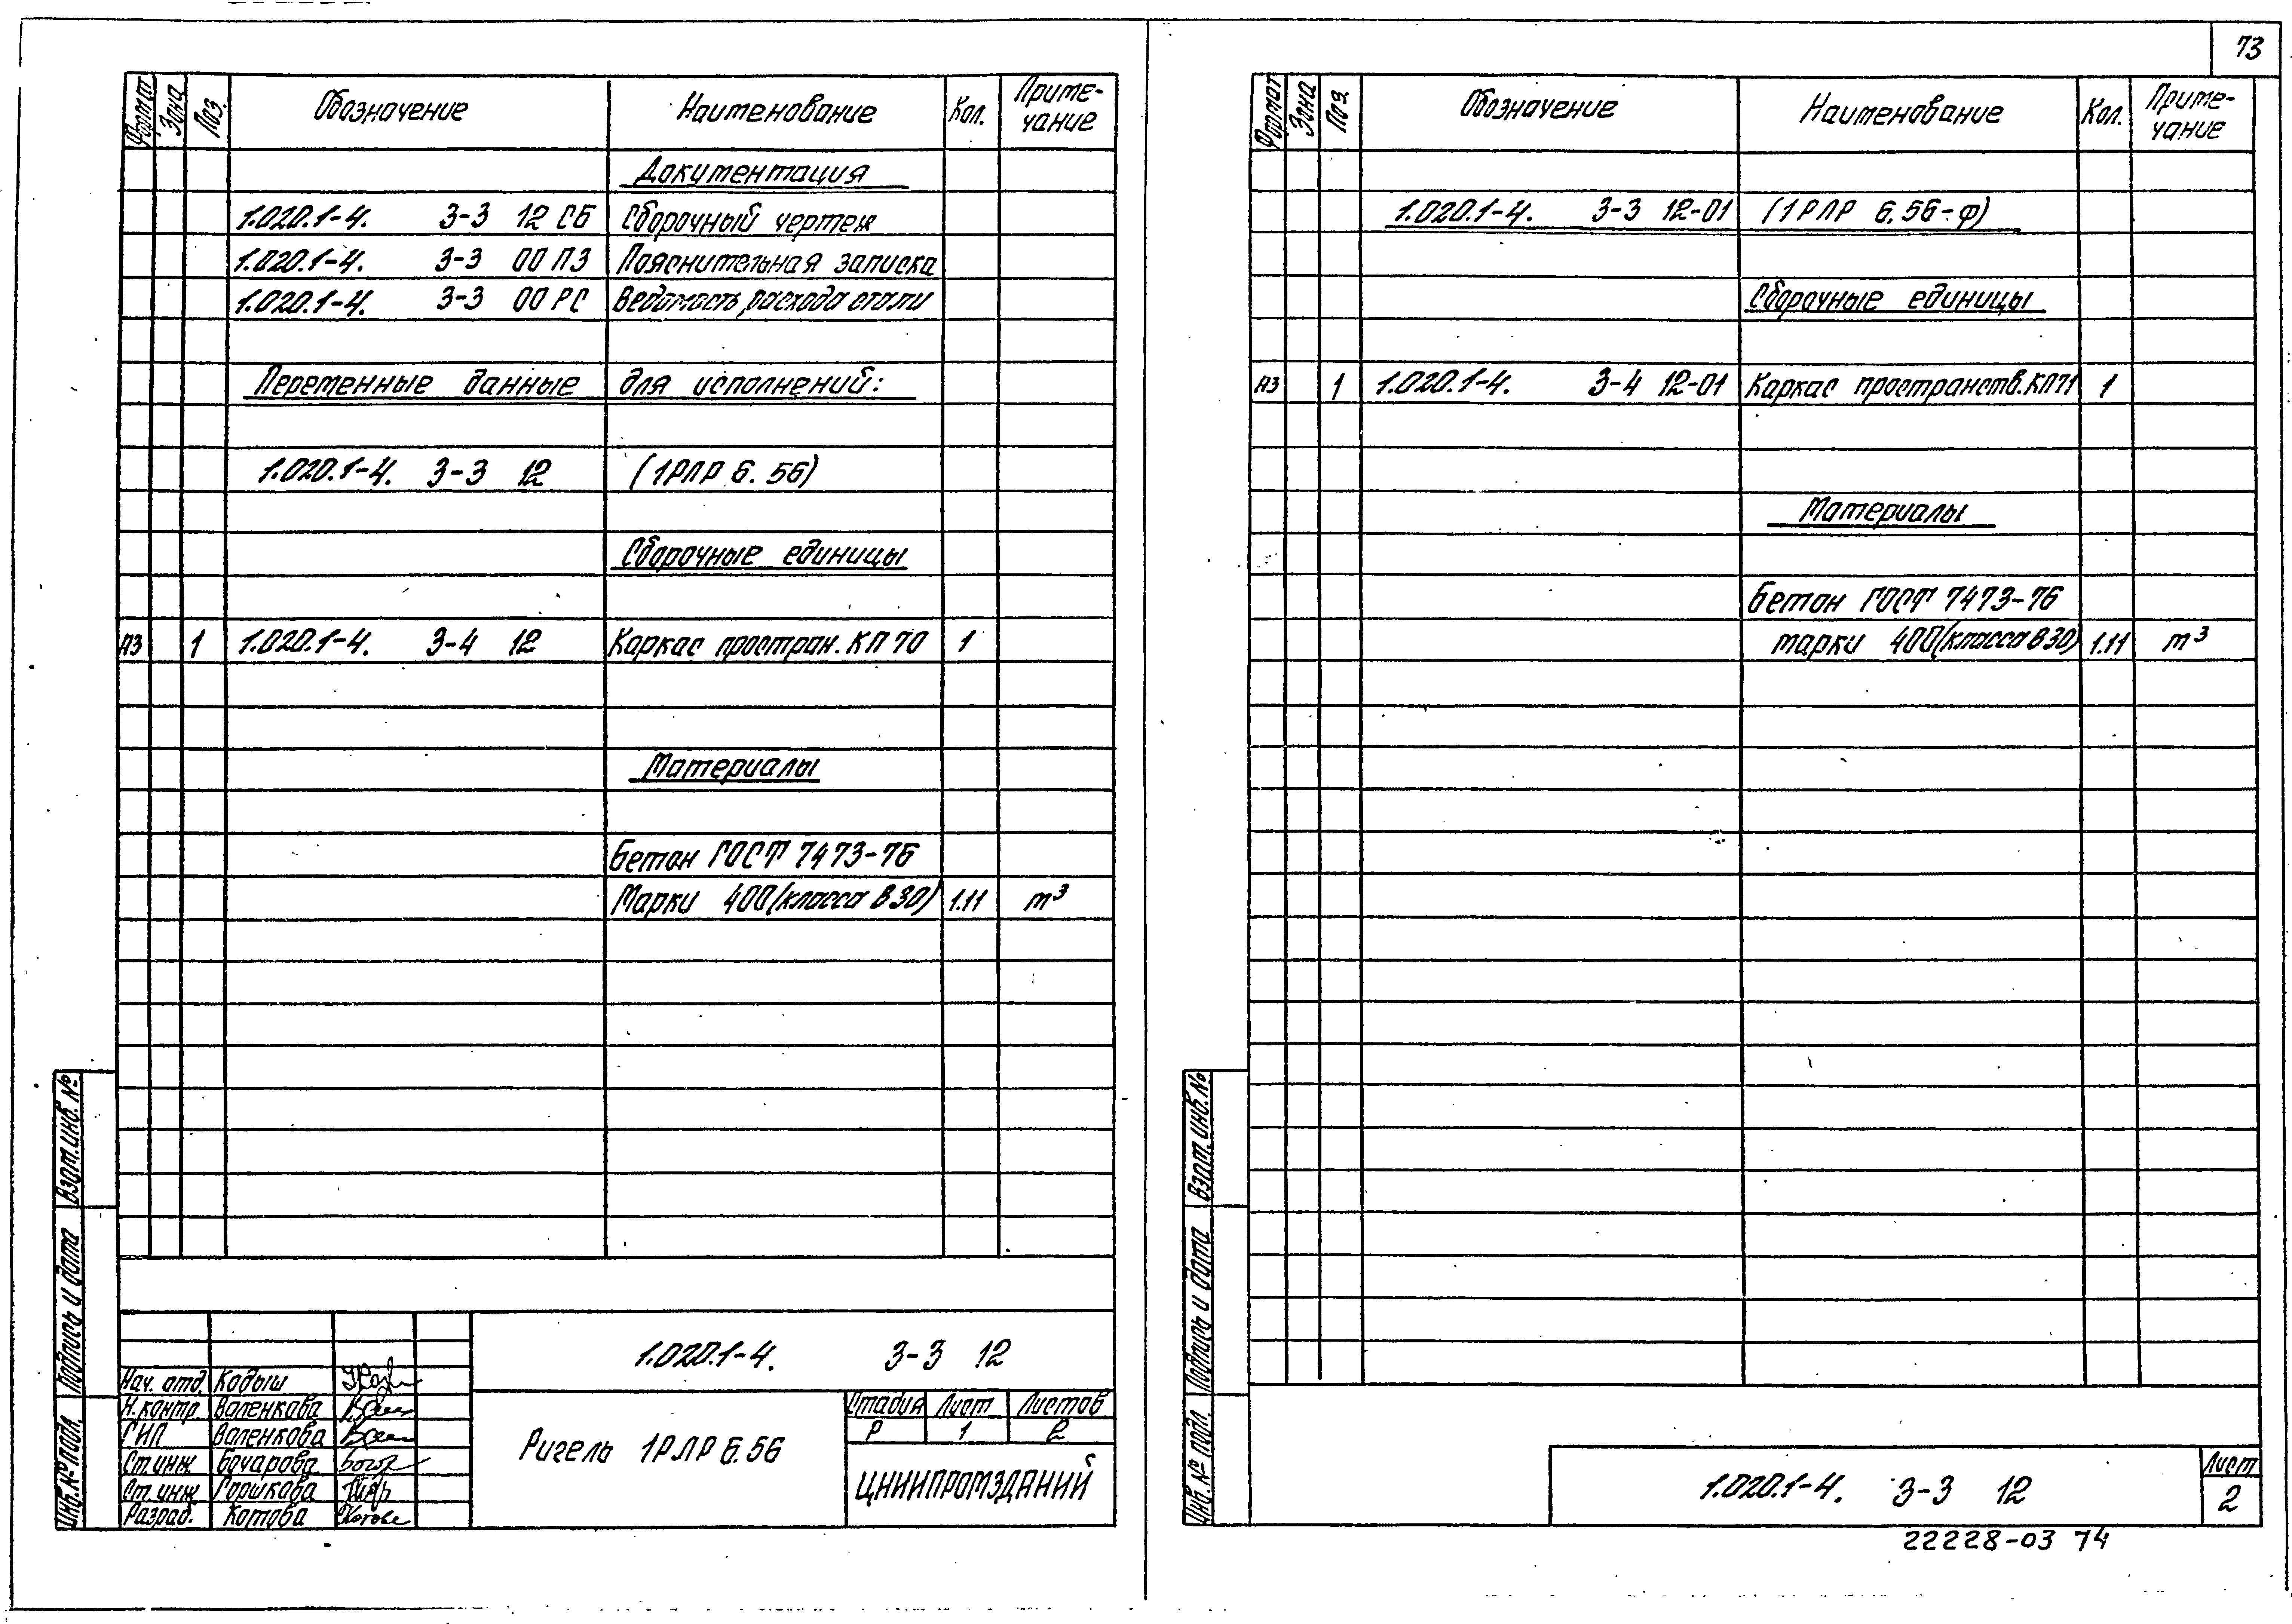 73
Формат Зона Поз. Обозначение Наименование Кол. Приме-
чание
Документация
1.020.1-4. 3-3 12 СБ Сборочный чертеж
1.020.1-4. 3-3 00 ПЗ Пояснительная записка
1.020.1-4. 3-3 00 РС Ведомость расхода стали
Переменные данные для исполнений:
1.020.1-4. 3-3 12 (1РЛР 6.56)
Сборочные единицы
А3 1 1.020.1-4. 3-4 12 Каркас простран. КП 70 1
Материалы
Бетон ГОСТ 7473-76
Марки 400 (класса В30) 1.11 м³
Взам. инв. №
Подпись и дата
Инв. № подл.
1.020.1-4. 3-3 12
Нач. отд. Кодыш
Н. контр.Валенкова
ГИП Валенкова
Ст. инж. Бочарова
Ст. инж. Горшкова
Разраб. Котова
Ригель 1РЛР 6.56
Стадия Лист Листов
Р 1 2
ЦНИИПРОМЗДАНИЙ
Формат Зона Поз. Обозначение Наименование Кол. Приме-
чание
1.020.1-4. 3-3 12-01 (1РЛР 6.56-ф)
Сборочные единицы
А3 1 1.020.1-4. 3-4 12-01 Каркас пространств. КП71 1
Материалы
Бетон ГОСТ 7473-76
марки 400 (класса В30) 1.11 м³
Взам. инв. №
Подпись и дата
Инв. № подл.
1.020.1-4. 3-3 12
Лист
2
22228-03 74